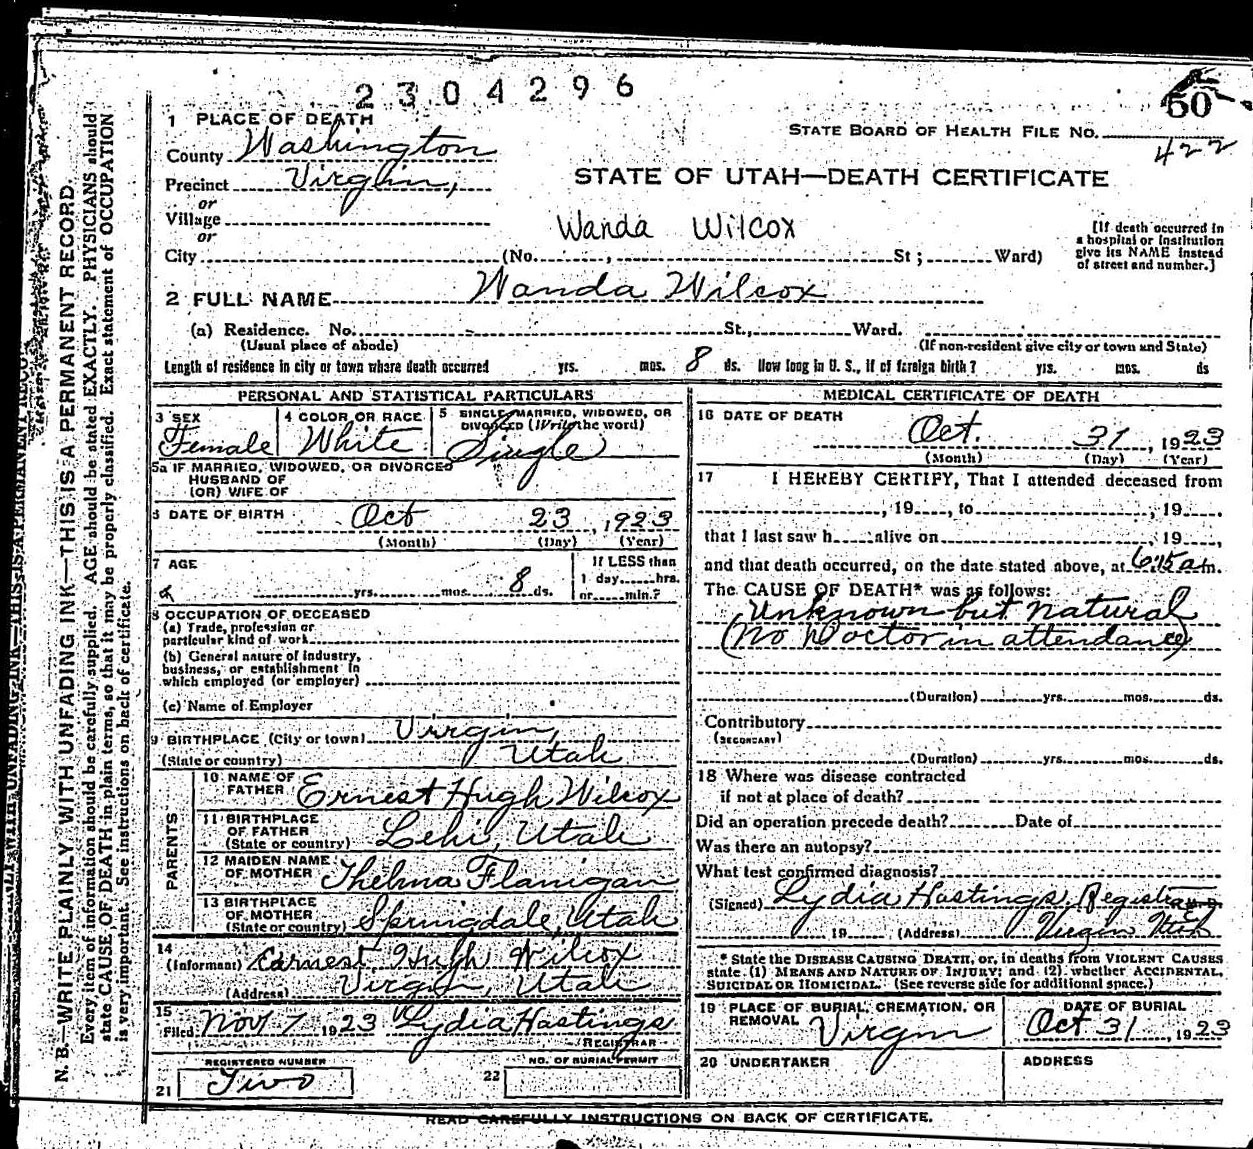 2304296
50
STATE BOARD OF HEALTH FILE NO.
422
1 PLACE OF DEATH
County Washington
Precinct Virgin,
or
Village
or
City (No. , St ; Ward)
STATE OF UTAH—DEATH CERTIFICATE
Wanda Wilcox
[If death occurred in
a hospital or institution
give its NAME instead
of street and number.]
2 FULL NAME Wanda Wilcox
(a) Residence. No. St., Ward.
(Usual place of abode) (If non-resident give city or town and State)
Length of residence in city or town where death occurred yrs. mos. 8 ds. How long in U. S., if of foreign birth? yrs. mos. ds
PERSONAL AND STATISTICAL PARTICULARS
3 SEX
Female
4 COLOR OR RACE
White
5 SINGLE, MARRIED, WIDOWED, OR
DIVORCED (Write the word)
Single
5a IF MARRIED, WIDOWED, OR DIVORCED
HUSBAND OF
(OR) WIFE OF
6 DATE OF BIRTH Oct 23, 1923
(Month) (Day) (Year)
7 AGE
yrs. mos. 8 ds.
If LESS than
1 day hrs.
or min.?
8 OCCUPATION OF DECEASED
(a) Trade, profession or
particular kind of work
(b) General nature of industry,
business, or establishment in
which employed (or employer)
(c) Name of Employer
9 BIRTHPLACE (City or town) Virgin,
(State or country) Utah
PARENTS
10 NAME OF
FATHER Ernest Hugh Wilcox
11 BIRTHPLACE
OF FATHER
(State or country) Lehi, Utah
12 MAIDEN NAME
OF MOTHER Thelma Flanigan
13 BIRTHPLACE
OF MOTHER
(State or country) Springdale, Utah
14
(Informant) Earnest Hugh Wilcox
(Address) Virgin, Utah
15
Filed Nov 7 1923 Lydia Hastings
REGISTRAR
REGISTERED NUMBER
21 Two
NO. OF BURIAL PERMIT
22
MEDICAL CERTIFICATE OF DEATH
16 DATE OF DEATH
Oct. 31, 1923
(Month) (Day) (Year)
17 I HEREBY CERTIFY, That I attended deceased from
, 19 , to , 19 ,
that I last saw h alive on , 19 ,
and that death occurred, on the date stated above, at 6:15 a m.
The CAUSE OF DEATH* was as follows:
Unknown but natural
(No Doctor in attendance)
(Duration) yrs. mos. ds.
Contributory
(SECONDARY)
(Duration) yrs. mos. ds.
18 Where was disease contracted
if not at place of death?
Did an operation precede death? Date of
Was there an autopsy?
What test confirmed diagnosis?
(Signed) Lydia Hastings, Registrar
19 (Address) Virgin Utah
* State the DISEASE CAUSING DEATH, or, in deaths from VIOLENT CAUSES
state (1) MEANS AND NATURE OF INJURY; and (2) whether ACCIDENTAL,
SUICIDAL OR HOMICIDAL. (See reverse side for additional space.)
19 PLACE OF BURIAL, CREMATION, OR
REMOVAL Virgin
DATE OF BURIAL
Oct 31, 1923
20 UNDERTAKER
ADDRESS
READ CAREFULLY INSTRUCTIONS ON BACK OF CERTIFICATE.
N. B. WRITE PLAINLY, WITH UNFADING INK—THIS IS A PERMANENT RECORD.
Every item of information should be carefully supplied. AGE should be stated EXACTLY. PHYSICIANS should
state CAUSE OF DEATH in plain terms, so that it may be properly classified. Exact statement of OCCUPATION
is very important. See instructions on back of certificate.